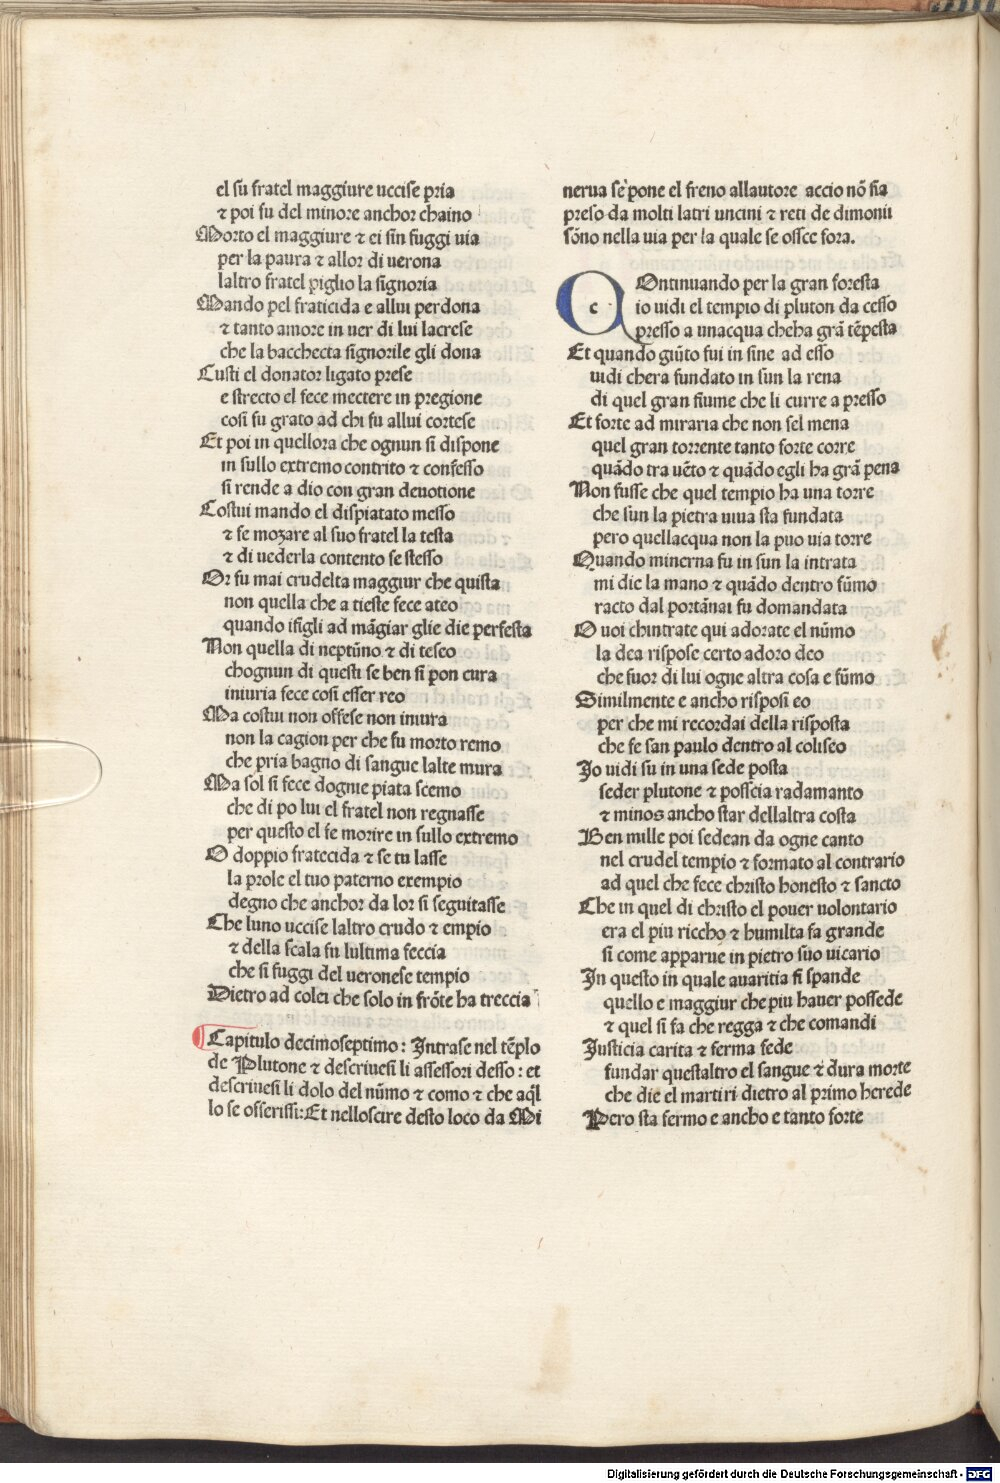 el su fratel maggiure uccise pria
⁊ poi fu del minore anchor chaino
Morto el maggiure ⁊ ei sin fuggi uia
per la paura ⁊ allor di uerona
laltro fratel piglio la signoria
Mando pel fraticida e allui perdona
⁊ tanto amore in uer di lui lacrese
che la bacchecta signorile gli dona
Custi el donator ligato prese
e strecto el fece mectere in pregione
cosi fu grato ad chi fu allui cortese
Et poi in quellora che ognun si dispone
in sullo extremo contrito ⁊ confesso
si rende a dio con gran deuotione
Costui mando el dispiatato messo
⁊ fe mozare al suo fratel la testa
⁊ di uederla contento se stesso
Or fu mai crudelta maggiur che quista
non quella che a tieste fece ateo
quando ifigli ad mãgiar glie die perfesta
Non quella di neptũno ⁊ di teseo
chognun di questi se ben si pon cura
iniuria fece cosi esser reo
Ma costui non offese non iniura
non la cagion per che fu morto remo
che pria bagno di sangue lalte mura
Ma sol si fece dogne piata scemo
che di po lui el fratel non regnasse
per questo el fe morire in sullo extremo
O doppio fratecida ⁊ se tu lasse
la prole el tuo paterno exempio
degno che anchor da lor si seguitasse
Che luno uccise laltro crudo ⁊ empio
⁊ della scala fu lultima feccia
che si fuggi del ueronese tempio
Dietro ad colei che solo in frõte ha treccia
Capitulo decimoseptimo: Intrase nel tẽplo
de Plutone ⁊ descriuesi li assessori desso: et
descriuesi li dolo del nũmo ⁊ como ⁊ che aq̃l
lo se offerissi: Et nelloscire desto loco da Mi
nerua se pone el freno allautore accio nõ sia
preso da molti latri uncini ⁊ reti de dimonii
sõno nella uia per la quale se osce fora.
c Ontinuando per la gran foresta
io uidi el tempio di pluton da cesso
presso a unacqua cheha grã tẽpesta
Et quando giũto fui in fine ad esso
uidi chera fundato in sun la rena
di quel gran fiume che li curre a presso
Et forte ad miraria che non sel mena
quel gran torrente tanto forte corre
quãdo tra uẽto ⁊ quãdo egli ha grã pena
Non fusse che quel tempio ha una torre
che sun la pietra uiua sta fundata
pero quellacqua non la puo uia torre
Quando minerua fu in sun la intrata
mi die la mano ⁊ quãdo dentro fũmo
racto dal portãnai fu domandata
O uoi chintrate qui adorate el nũmo
la dea rispose certo adoro deo
che fuor di lui ogne altra cosa e fũmo
Similmente e ancho risposi eo
per che mi recordai della risposta
che fe san paulo dentro al coliseo
Io uidi su in una sede posta
seder plutone ⁊ posseia radamanto
⁊ minos ancho star dellaltra costa
Ben mille poi sedean da ogne canto
nel crudel tempio ⁊ formato al contrario
ad quel che fece christo honesto ⁊ sancto
Che in quel di christo el pouer uolontario
era el piu riccho ⁊ humilta fa grande
si come apparue in pietro suo uicario
In questo in quale auaritia si spande
quello e maggiur che piu hauer possede
⁊ quel si fa che regga ⁊ che comandi
Iusticia carita ⁊ ferma fede
fundar questaltro el sangue ⁊ dura morte
che die el martiri dietro al primo herede
Pero sta fermo e ancho e tanto forte
Digitalisierung gefördert durch die Deutsche Forschungsgemeinschaft - DFG